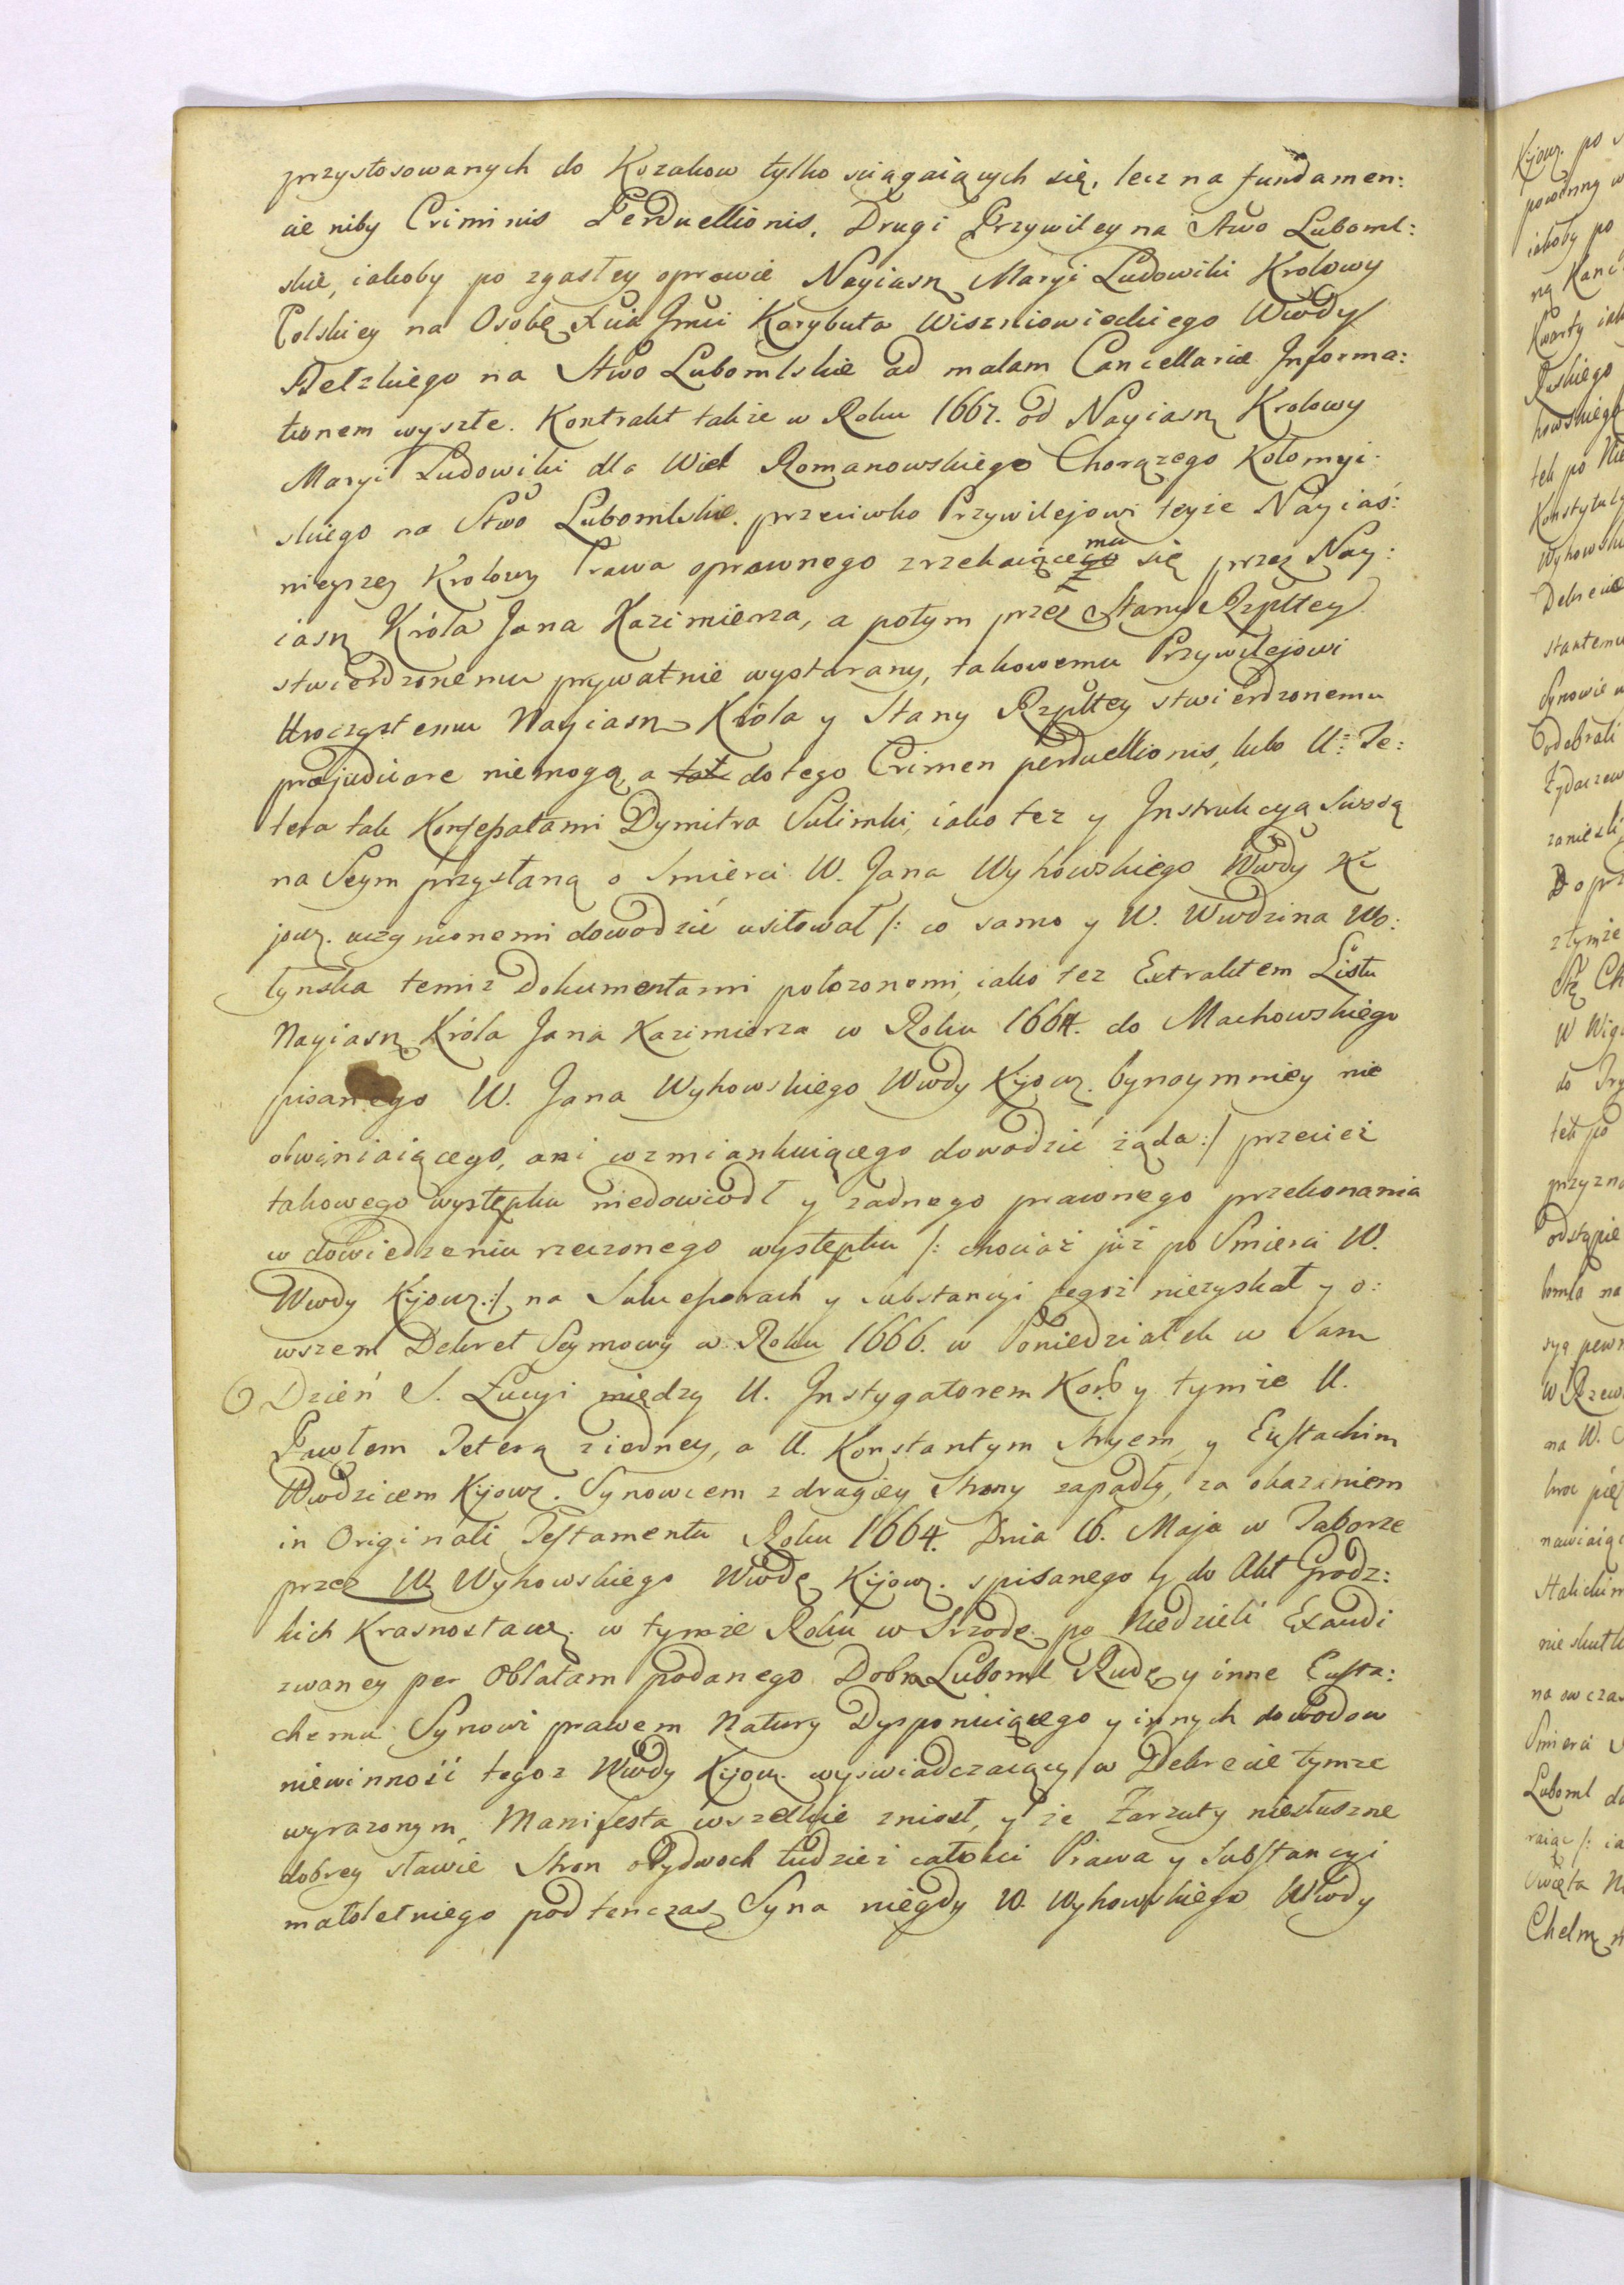 przystosowanych do Kozakow tylko sciągaiących się, lecz na fundamen:
cie niby Criminis Perduellionis. Drugi Przywiley na Stwo Luboml:
skie, iakoby po zgasłey oprawie Nayiasn Maryi Ludowiki Krolowy
Polskiey na Osobę Xcia Jmci Korybuta Wiszniowieckiego Wwdy
Bełzkiego na Stwo Lubomlskie ad malam Cancellariæ Informa:
tionem wyszłe. Kontrakt takze w Roku 1667. od Nayiasn Krolowy
Maryi Ludowiki dla Wiel Romanowskiego Chorązego Kołomyi:
skiego na Stwo Lubomlskie. przeciwko Przywilejowi teyze Nayiaś:
nieyszey Krolowy Prawa oprawnego zrzekaiącemu się przez Nay:
iasn Króla Jana Kazimierza, a potym przez Stany Rzpltey
stwierdzonemu prywatnie wystarany, takowemu Przywilejowi
Uroczystemu Nayiasn Króla y Stany Rzpltey stwierdzonemu
præjudicare niemogą, a do tego Crimen perduellionis, lubo U: Te:
tera tak Konfessatami Dymitra Sulimki, iako tez y Instrukcyą Swoią
na Seym przysłaną o Smierci W. Jana Wyhowskiego Wwdy Ki
jows. uczynionemi dowodzić usiłował /: co samo y W. Wwdzina Wo:
łynska temiz Dokumentami położonemi, iako tez Extraktem Listu
Nayiasn Króla Jana Kazimierza w Roku 1664. do Machowskiego
pisanego W. Jana Wyhowskiego Wwdy Kijows. bynaymniey nie
obwiniaiącego, ani wzmiankuiącego dowodzić żąda :/ przecież
takowego występku niedowiodł y zadnego prawnego przekonania
w dowiedzeniu rzeczonego występku /: chociaż już po Smierci W.
Wwdy Kijows. :/ na Sukcessorach y substancyi tegoż niezyskał y o:
wszem Dekret Seymowy w Roku 1666. w Poniedziałek w Sam
Dzień S. Łucyi między U. Instygatorem Kor: y tymże U.
Pawłem Teterą ziedney, a U. Konstantym Stryem y Eustachim
Wwdzicem Kijows. Synowcem z drugiey Strony zapadły, za okazaniem
in Originali Testamentu Roku 1664. Dnia 16. Maja w Taborze
przez W. Wyhowskiego Wwdę Kijows. spisanego y do Akt Grodz:
kich Krasnostaws. w tymże Roku w Srzodę po Niedzieli Exaudi
zwaney per Oblatam podanego Dobra Luboml Rudę y inne Eusta:
chemu Synowi prawem Natury Dysponuiącego y innych dowodow
niewinność tegoz Wwdy Kijows. wyswiadczaiących w Dekrecie tymze
wyrazonym, Manifesta wszelkie zniosł, y że Zarzuty niesłuszne
dobrey sławie Stron obydwoch tudzież całości Prawa y Substancyi
małoletniego pod tenczas Syna niegdy W. Wyhowskiego Wwdy